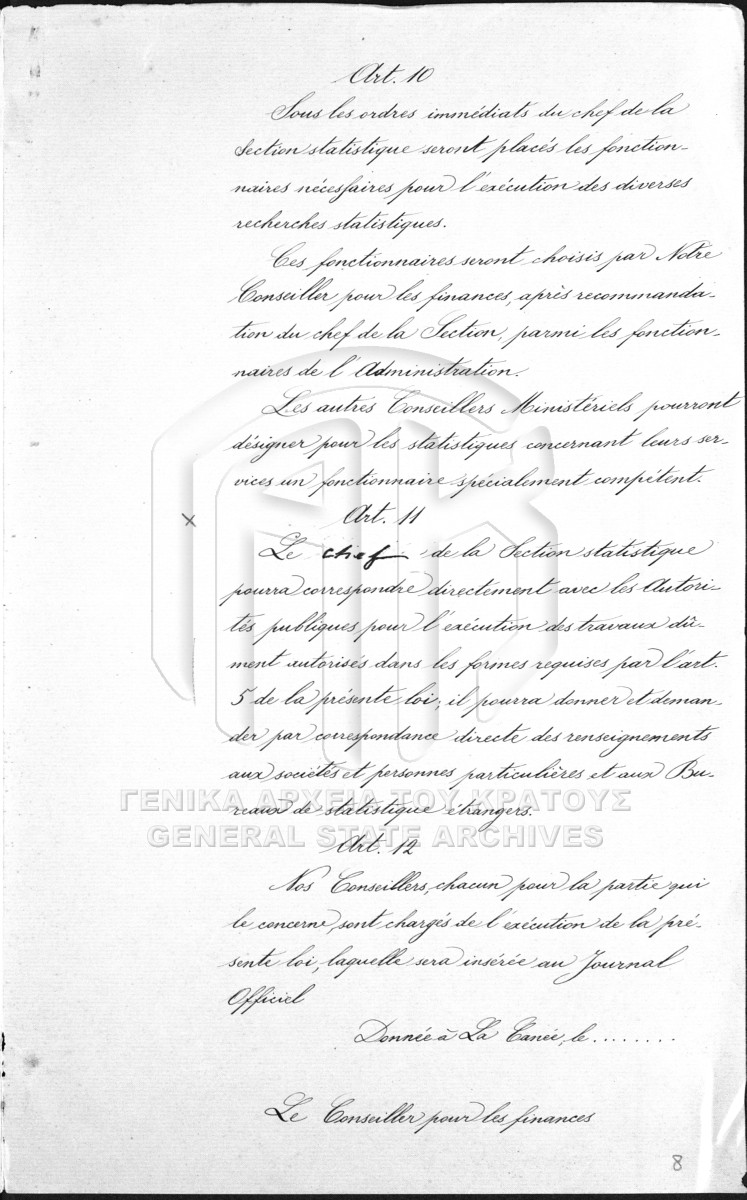 Art. 10
Sous les ordres immédiats du chef de la
Section statistique seront placés les fonction-
naires nécessaires pour l'exécution des diverses
recherches statistiques.
Ces fonctionnaires seront choisis par Notre
Conseiller pour les finances, après recommanda-
tion du chef de la Section, parmi les fonction-
naires de l'Administration.
Les autres Conseillers Ministériels pourront
désigner pour les statistiques concernant leurs ser-
vices un fonctionnaire spécialement compétent.
Art. 11
Le chef de la Section statistique
pourra correspondre directement avec les Autori-
tés publiques pour l'exécution des travaux dû-
ment autorisés dans les formes requises par l'art.
5 de la présente loi; il pourra donner et deman-
der par correspondance directe des renseignements
aux sociétés et personnes particulières et aux Bu-
ΓΕΝΙΚΑ ΑΡΧΕΙΑ ΤΟΥ ΚΡΑΤΟΥΣ
reaux de statistique étrangers.
GENERAL STATE ARCHIVES
Art. 12
Nos Conseillers, chacun pour la partie qui
le concerne, sont chargés de l'exécution de la pré-
sente loi, laquelle sera insérée au Journal
Officiel
Donnée à La Canée, le ........
Le Conseiller pour les finances
8